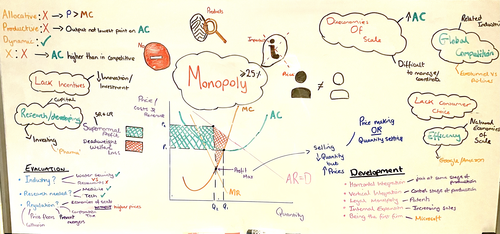 Allocative: X → P > MC
Productive: X → Output not lowest point on AC
Dynamic: ✓
X : X → AC higher than in competitive
Products
No
Imperfect
Price
Diseconomies Of Scale
↑ AC
Related Industries
Global Competition
Difficult to manage/coordinate
Lack Incentives
↓ Innovation/Investment
Monopoly
≥25%
≠
Lack Consumer Choice
Natural Economies of Scale
Efficiency
Capital
Research/developing
Investing
"Pharma"
SR+LR
Supernormal Profit
Deadweight Welfare Loss
Price/Costs & Revenue
MC
AC
AR=D
MR
Profit Max
Quantity
Selling
↓ Quantity
but
↑ Prices
Price making
OR
Quantity setting
Google/Amazon
EVALUATION
Industry?
Research needed?
Medicine ✓
Tech ✓
Regulation?
economies of scale
without higher prices
Price them
Prevent
mergers
Collusion
Development
Horizontal Integration : Join at same stage of production
Vertical Integration : Control stages of production
Legal Monopoly : Patents
Internal Expansion : Increasing sales
Being the first firm : Microsoft